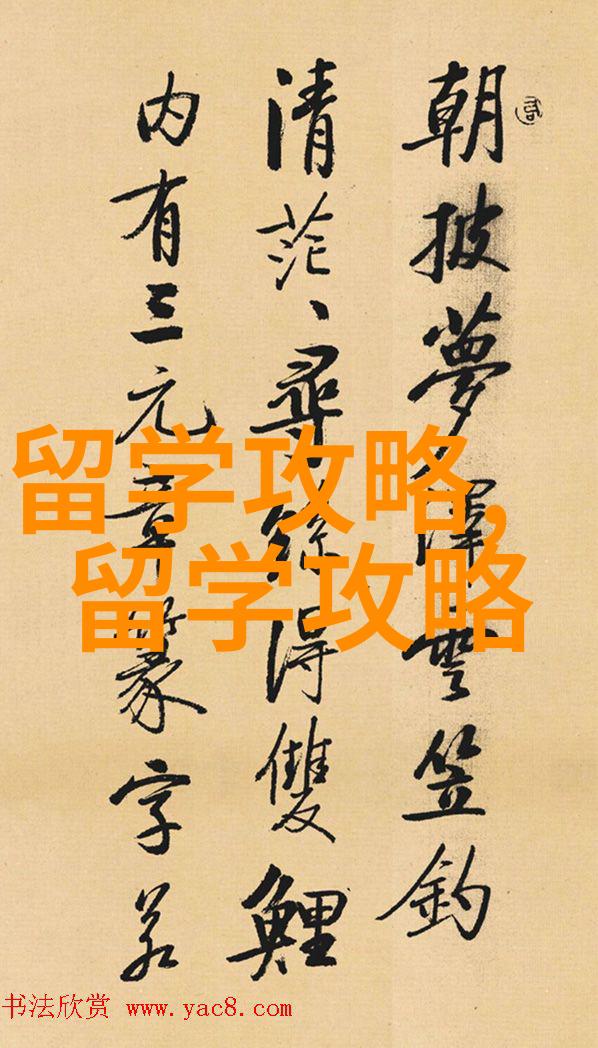 朝披夢澤雲笠釣
清茫、尋絲得雙鯉
内有三元章篆字若
留学攻略,
留学攻略
书法欣赏 www.yac8.com